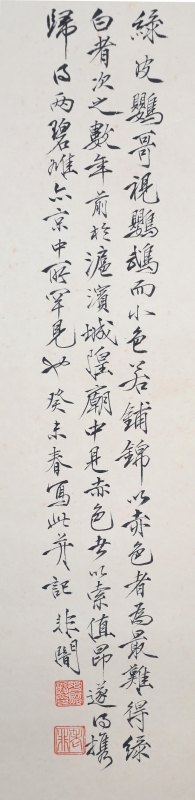 綠皮鸚哥視鸚鵡而小色若鋪錦以赤色者為最難得綠
白者次之數年前於滬濱城隍廟中見赤色者以索值昂遂乃攜
歸乃兩碧雌亦京中所罕見也癸未春寫此并記 非闇